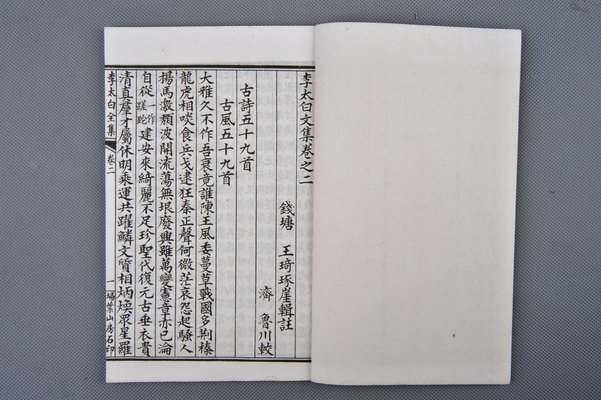 李太白文集卷之二
錢塘 王琦琢崖輯註
濟 魯川較
古詩五十九首
古風五十九首
大雅久不作吾衰竟誰陳王風委蔓草戰國多荆榛
龍虎相啖食兵戈逮狂秦正聲何微茫哀怨起騷人
揚馬激頹波開流蕩無垠廢興雖萬變憲章亦已淪
自從一作蹉跎建安來綺麗不足珍聖代復元古垂衣貴
清真羣才屬休明乘運共躍鱗文質相炳煥眾星羅
李太白全集 卷二 一 掃葉山房石印